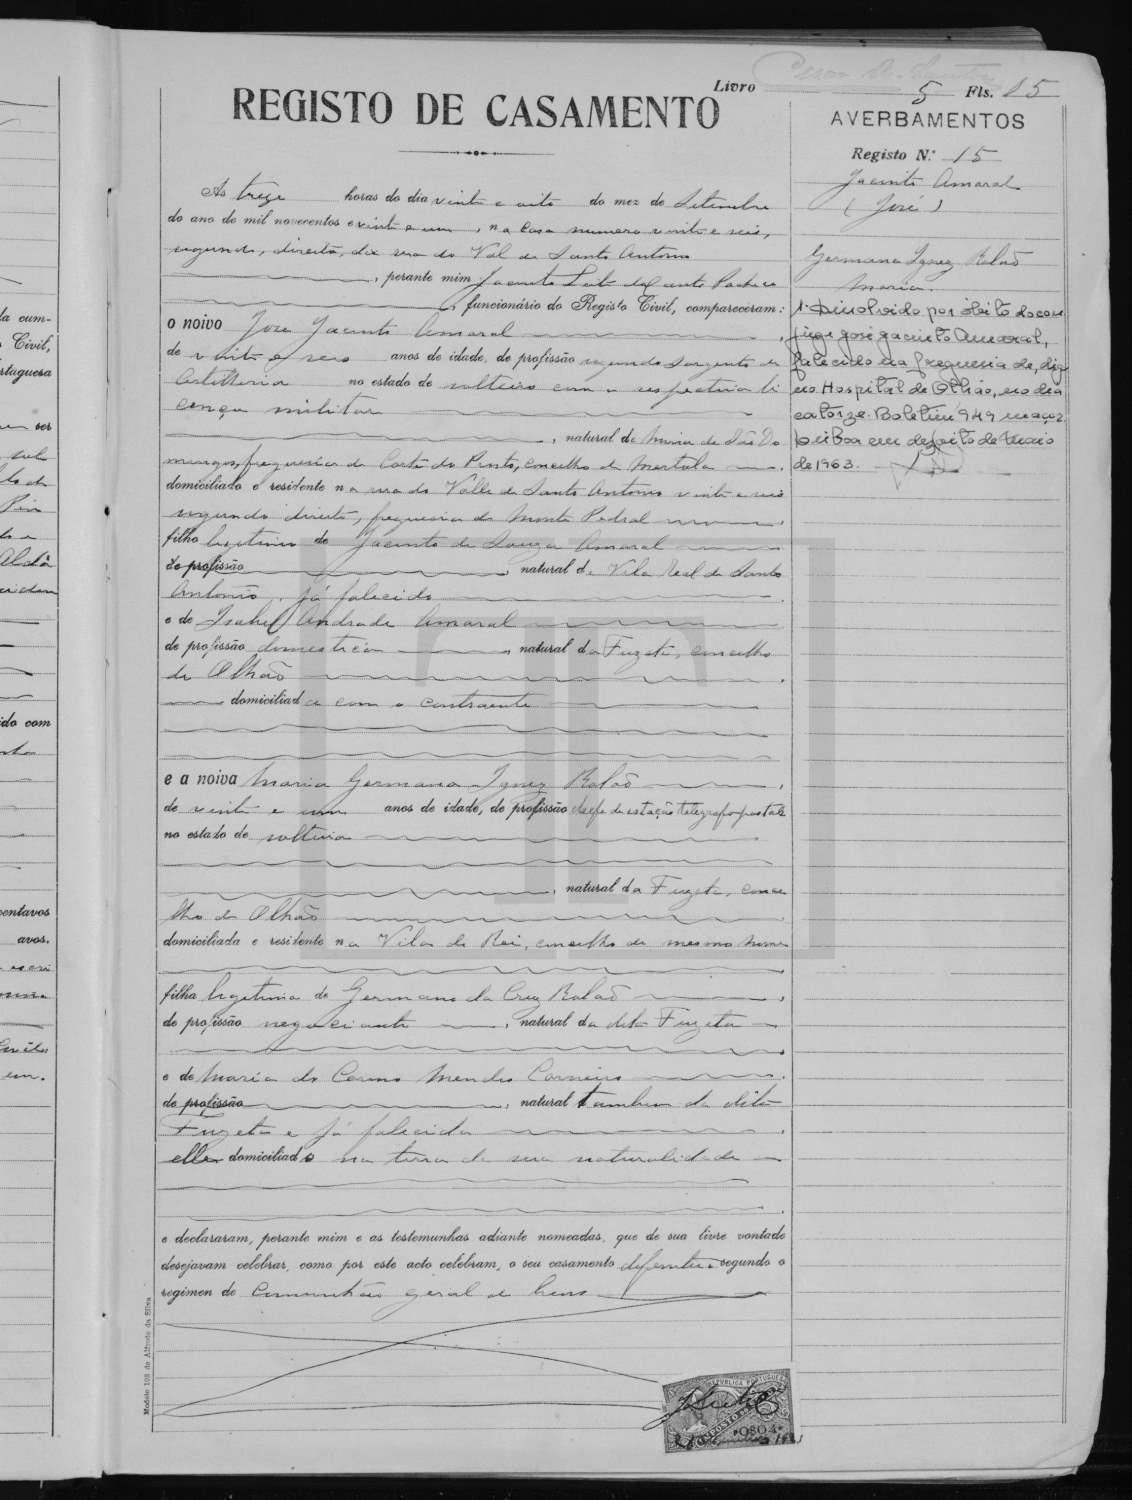 Livro 5 Fls. 15
REGISTO DE CASAMENTO
AVERBAMENTOS
Registo N.º 15
Jacinto Amaral
(José)
Germana Ignez Balaõ
Maria
1º Dissolvido por óbito do con
juge José Jacinto Amaral,
falecido na freguesia de, digo
no Hospital de Olhão, no dia
catorze. Boletim 949 maço 2
Lisboa em dezoito de Maio
de 1963.
As treze horas do dia vinte e oito do mez de Setembro
do ano de mil novecentos e vinte e um, na casa numero vinte e seis,
segundo, direito, da rua do Val de Santo Antonio
, perante mim Jacinto Leite de Pacheco
, funcionário do Registo Civil, compareceram:
o noivo José Jacinto Amaral
de vinte e seis anos de idade, de profissão segundo sargento de
Artilheria no estado de solteiro com a respectiva li
cença militar
, natural da Mina de São Do
mingos, freguesia da Corte do Pinto, concelho de Mertola
domiciliado e residente na rua do Valle de Santo Antonio vinte e seis
segundo direito, freguesia do Monte Pedral
filho legitimo de Jacinto de Souza Amaral
de profissão , natural de Vila Real de Santo
Antonio, já falecido
e de Isabel Andrade Amaral
de profissão domestica , natural da Fuzeta, concelho
de Olhão
domiciliada com o contraente
e a noiva Maria Germana Ignez Balaõ
de vinte e um anos de idade, de profissão chefe da estação telegrafo postal
no estado de solteira
, natural da Fuzeta, conce
lho de Olhão
domiciliada e residente na Vila de Rei, concelho do mesmo nome
filha legitima de Germano da Cruz Balaõ
de profissão negociante , natural da dita Fuzeta
e de Maria do Carmo Mendes Carneiro
de profissão , natural tambem da dita
Fuzeta e já falecida
elle domiciliado na terra da sua naturalidade
e declararam, perante mim e as testemunhas adiante nomeadas, que de sua livre vontade
desejavam celebrar, como por este acto celebram, o seu casamento definitivo segundo o
regimen de Comunhão geral de bens
Modelo 108 de Alfredo da Silva
REPUBLICA PORTUGUESA
IMPOSTO
0$04
da cum-
o Civil,
rtuguesa
ido com
centavos
avos.